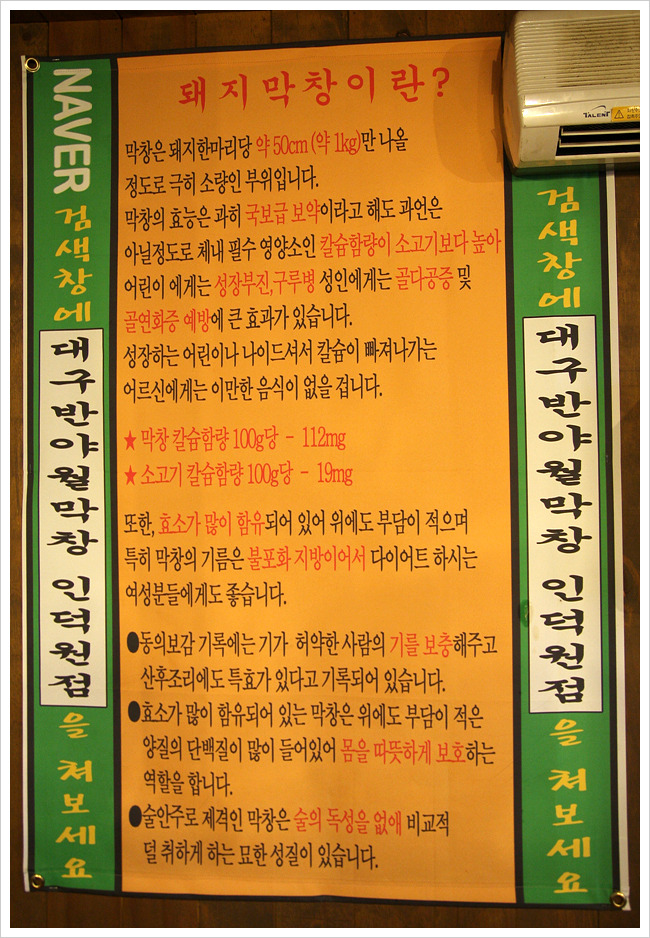 돼지막창이란?
막창은 돼지한마리당 약 50cm (약 1kg)만 나올
정도로 극히 소량인 부위입니다.
막창의 효능은 과히 국보급 보약이라고 해도 과언은
아닐정도로 체내 필수 영양소인 칼슘함량이 소고기보다 높아
어린이 에게는 성장부진,구루병 성인에게는 골다공증 및
골연화증 예방에 큰 효과가 있습니다.
성장하는 어린이나 나이드셔서 칼슘이 빠져나가는
어르신에게는 이만한 음식이 없을 겁니다.
★ 막창 칼슘함량 100g당 - 112mg
★ 소고기 칼슘함량 100g당 - 19mg
또한, 효소가 많이 함유되어 있어 위에도 부담이 적으며
특히 막창의 기름은 불포화 지방이어서 다이어트 하시는
여성분들에게도 좋습니다.
●동의보감 기록에는 기가 허약한 사람의 기를 보충해주고
산후조리에도 특효가 있다고 기록되어 있습니다.
●효소가 많이 함유되어 있는 막창은 위에도 부담이 적은
양질의 단백질이 많이 들어있어 몸을 따뜻하게 보호하는
역할을 합니다.
●술안주로 제격인 막창은 술의 독성을 없애 비교적
덜 취하게 하는 묘한 성질이 있습니다.
NAVER 검색창에 대구반야월막창 인덕원점을 쳐보세요
검색창에 대구반야월막창 인덕원점을 쳐보세요
TALENT